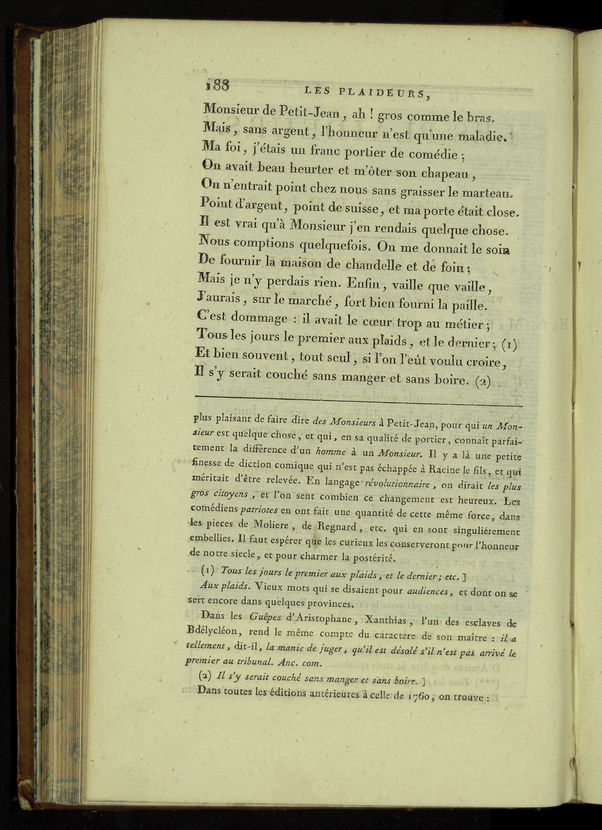 188
LES PLAIDEURS,
Monsieur de Petit-Jean, ah ! gros comme le bras.
Mais, sans argent, l'honneur n'est qu'une maladie.
Ma foi, j'étais un franc portier de comédie ;
On avait beau heurter et m'ôter son chapeau,
On n'entrait point chez nous sans graisser le marteau.
Point d'argent, point de suisse, et ma porte était close.
Il est vrai qu'à Monsieur j'en rendais quelque chose.
Nous comptions quelquefois. On me donnait le soin
De fournir la maison de chandelle et de foin ;
Mais je n'y perdais rien. Enfin, vaille que vaille,
J'aurais, sur le marché, fort bien fourni la paille.
C'est dommage : il avait le cœur trop au métier ;
Tous les jours le premier aux plaids, et le dernier ; (1)
Et bien souvent, tout seul, si l'on l'eût voulu croire,
Il s'y serait couché sans manger et sans boire. (2)
plus plaisant de faire dire des Monsieurs à Petit-Jean, pour qui un Mon-
sieur est quelque chose, et qui, en sa qualité de portier, connaît parfai-
tement la différence d'un homme à un Monsieur. Il y a là une petite
finesse de diction comique qui n'est pas échappée à Racine le fils, et qui
méritait d'être relevée. En langage révolutionnaire, on dirait les plus
gros citoyens, et l'on sent combien ce changement est heureux. Les
comédiens patriotes en ont fait une quantité de cette même force, dans
les pieces de Moliere, de Regnard, etc. qui en sont singuliérement
embellies. Il faut espérer que les curieux les conserveront pour l'honneur
de notre siecle, et pour charmer la postérité.
(1) Tous les jours le premier aux plaids, et le dernier ; etc. ]
Aux plaids. Vieux mots qui se disaient pour audiences, et dont on se
sert encore dans quelques provinces.
Dans les Guêpes d'Aristophane, Xanthias, l'un des esclaves de
Bdélycléon, rend le même compte du caractere de son maître : il a
tellement, dit-il, la manie de juger, qu'il est désolé s'il n'est pas arrivé le
premier au tribunal. Anc. com.
(2) Il s'y serait couché sans manger et sans boire. ]
Dans toutes les éditions antérieures à celle de 1760, on trouve :